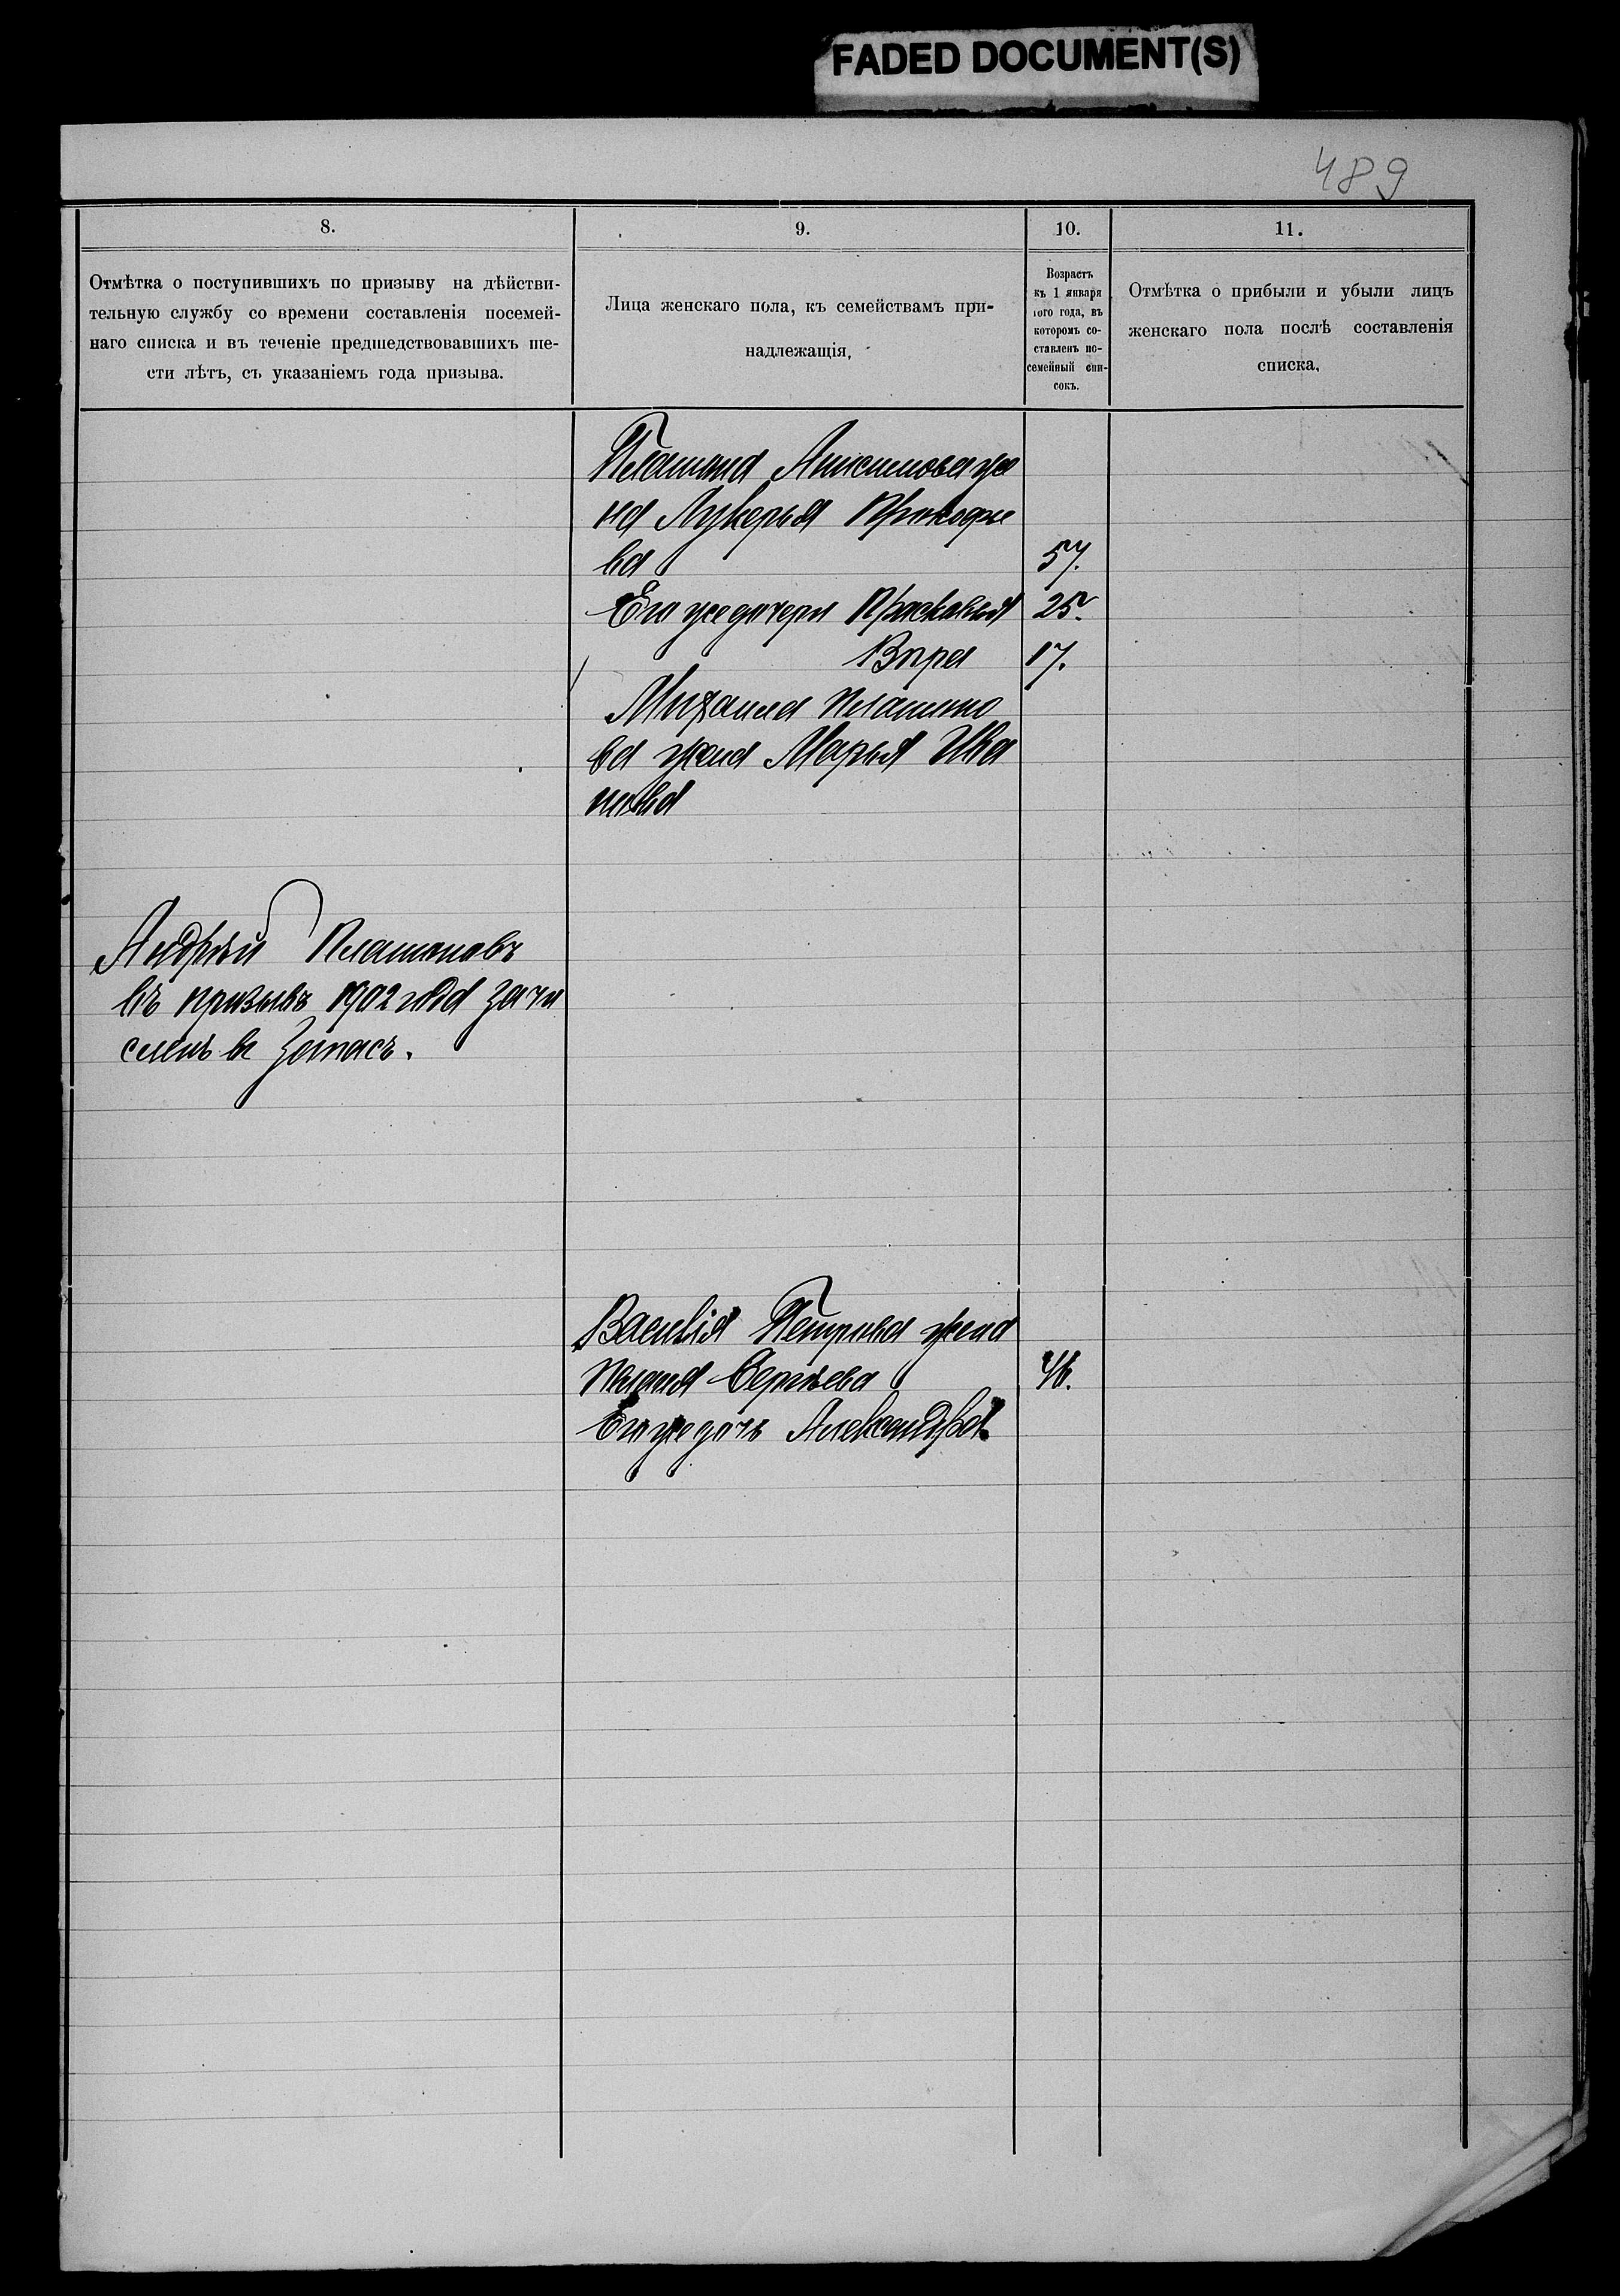 FADED DOCUMENT(S)
489
8.
9.
10.
11.
Отмѣтка о поступившихъ по призыву на дѣйстви-
тельную службу со времени составленія посемей-
наго списка и въ теченіе предшедствовавшихъ ше-
сти лѣтъ, съ указаніемъ года призыва.
Лица женскаго пола, къ семействамъ при-
надлежащія,
Возрастъ
къ 1 января
того года, въ
которомъ со-
ставленъ по-
семейный спи-
сокъ.
Отмѣтка о прибыли и убыли лицъ
женскаго пола послѣ составленія
списка.
Платона Анисимова же
на Лукерья Прокофье
ва 57.
Его же дочери Прасковья 25.
Вѣра 17.
Михаила Платоно
ва жена Марья Ива
нова
Андрѣй Платоновъ
въ призывъ 1902 года зачи
сленъ въ запасъ.
Василія Петрова жена
Сергѣева 46.
Его же дочь Александра